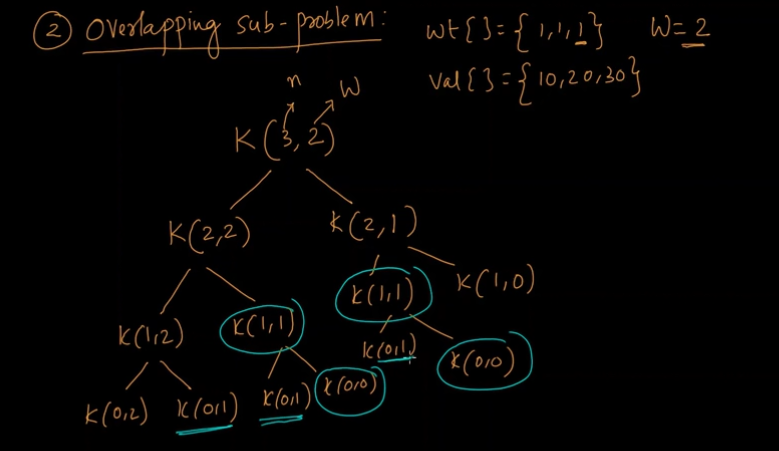 ② Overlapping sub-problem: wt{}={1,1,1} W=2
val{}={10,20,30}
n W
K(3,2)
K(2,2) K(2,1)
K(1,2) K(1,1) K(1,1) K(1,0)
K(0,1) K(0,0)
K(0,2) K(0,1) K(0,1) K(0,0)